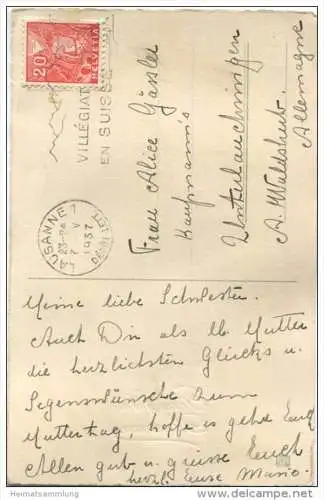 20
HELVETIA
VILLÉGIAT
EN SUISSE
LAUSANNE 1
7 V
1937
Frau Alice Gässler
Kaufmann's
Unterlauchringen
A. Waldshut.
Allemagne
Meine liebe Schwester.
Auch Dir als lb. Mutter
die herzlichsten Glücks u.
Segenswünsche zum
Muttertag, hoffe es gehe Euch
Allen gut u. grüsse Euch
herzl. Eure Marie.
Heimatsammlung
www.ansichtskartenversand.com